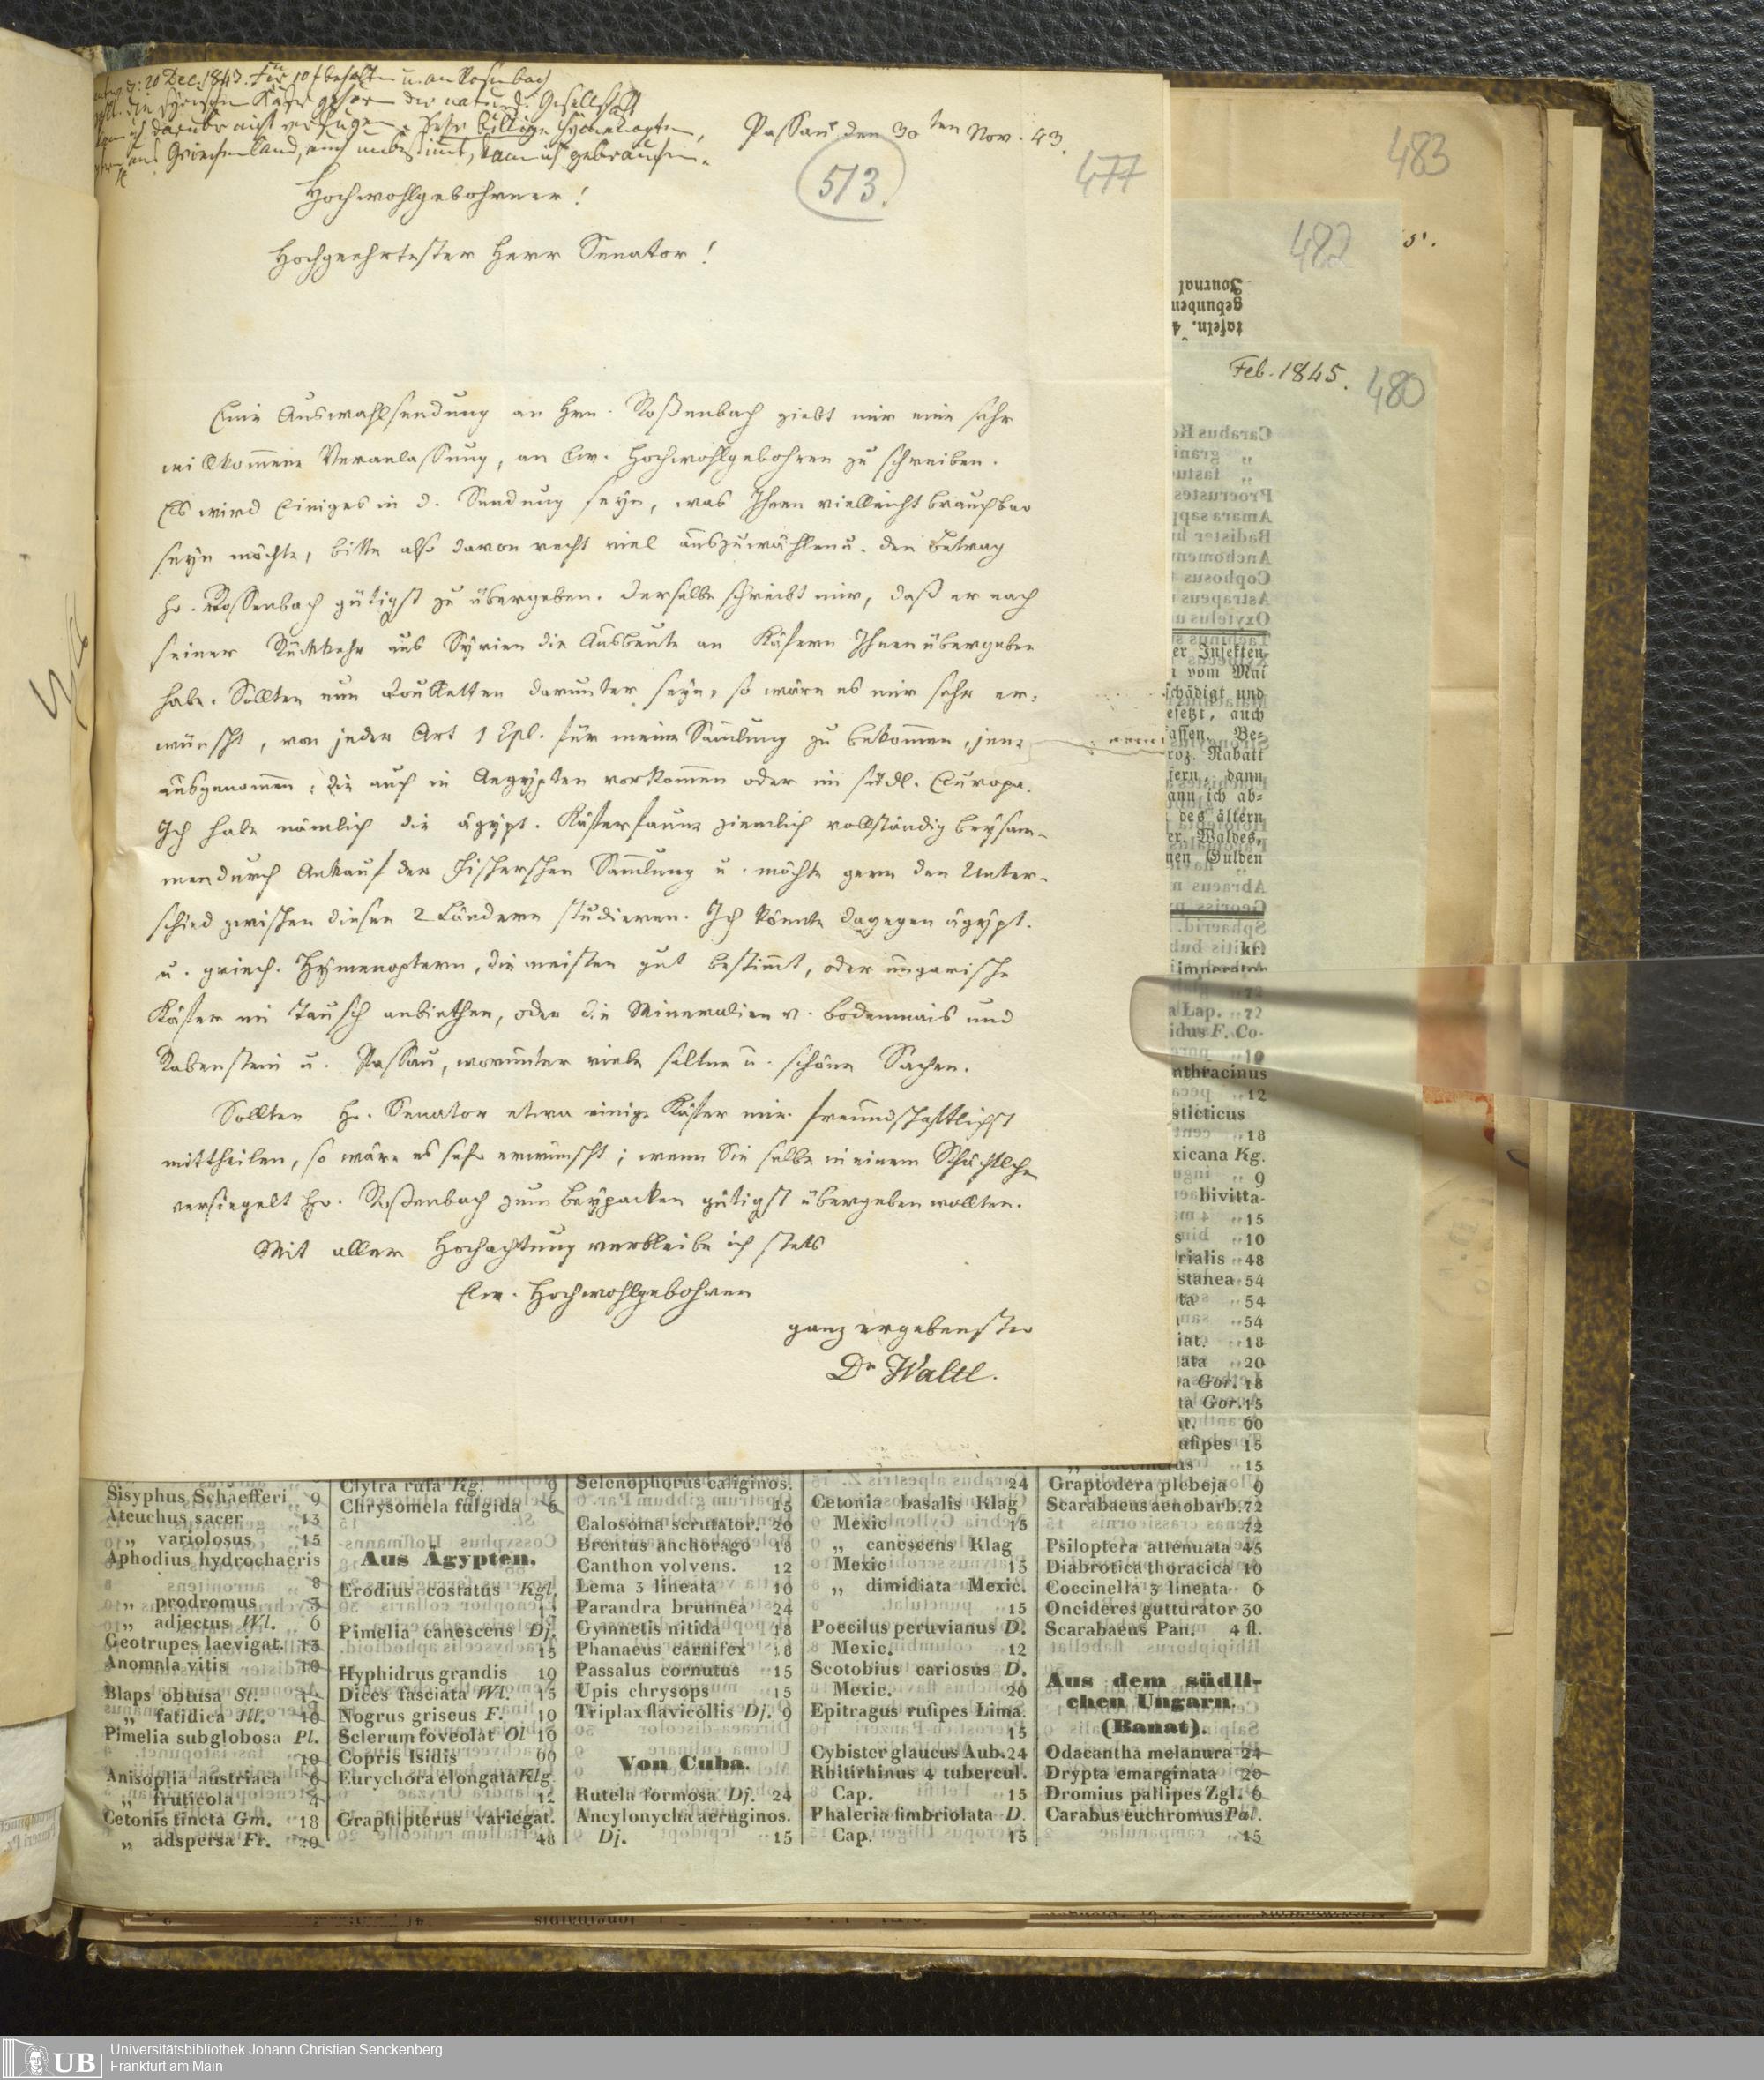 20 Dec. 1843. Für 10 f behalten u. an Rosenbach
die syrischen Käfer gehören der naturf. Gesellschaft
ich darüber nicht verfügen. Sehr billige Hymenoptern,
aus Griechenland, auch unbestimt, kann ich gebrauchen.
Passau den 30ten Nov. 43.
513.
477
Hochwohlgebohrner!
Hochgeehrtester Herr Senator!
Eine Auswahlsendung an Hrn. Roßenbach giebt mir eine sehr
willkommene Veranlassung, an Ew. Hochwohlgebohren zu schreiben.
Es wird Einiges in d. Sendung seyn, was Ihnen vielleicht brauchbar
seyn möchte, bitte also davon recht viel auszuwählen u. den Betrag
Hr. Rossenbach gütigst zu übergeben. Derselbe schreibt mir, daß er nach
seiner Rückkehr aus Syrien die Ausbeute an Käfern Ihnen übergeben
habe. Sollten nun Doubletten darunter seyn, so wäre es mir sehr er-
wünscht, von jeder Art 1 Expl. für meine Samlung zu bekommen, jene
ausgenommen, die auch in Aegypten vorkommen oder im südl. Europa.
Ich habe nämlich die ägypt. Käferfauna ziemlich vollständig beysam-
men durch Ankauf der Fischerschen Samlung u. möchte gern den Unter-
schied zwischen diesen 2 Ländern studieren. Ich könnte dagegen ägypt.
u. griech. Hymenoptern, die meisten gut bestimt, oder ungarische
Käfer im Tausch anbiethen, oder die Mineralien v. Bodenmais und
Rabenstein u. Passau, worunter viele seltne u. schöne Sachen.
Sollten Hr. Senator etwa einige Käfer mir freundschaftlichst
mittheilen, so wäre es sehr erwünscht; wenn Sie selbe in einem Schächtelchen
versiegelt Hr. Roßenbach zum Beypacken gütigst übergeben wollten.
Mit aller Hochachtung verbleibe ich stets
Ew. Hochwohlgebohren
ganz ergebenster
Dr Waltl.
483
482
Feb. 1845.
480
Journal
gebunden
tafeln.
er Insekten-
vom Mai
schädigt und
esetzt, auch
assen. Be-
roz. Rabatt
fern, dann
ann ich ab-
des ältern
er. Waldes,
nen Gulden
kr.
imperator
a Lap. „ 72
idus F. Co-
10
nthracinus
„ 12
sticticus
„ 18
xicana Kg.
„ 9
bivitta-
„ 15
„ 10
rialis „ 48
stanea 54
ta „ 54
„ 54
iat. „ 18
ata „ 20
a Gor. 18
ta Gor. 15
at. 60
ufipes 15
15
Sisyphus Schaefferi 9
Ateuchus sacer 13
„ variolosus 15
Aphodius hydrochaeris
8
„ prodromus 3
„ adjectus Wl. 6
Geotrupes laevigat. 13
Anomala vitis 10
Blaps obtusa St. 12
„ fatidica Ill. 10
Pimelia subglobosa Pl.
10
Anisoplia austriaca 6
„ fruticola 4
Cetonis tincta Gm. 18
„ adspersa Fr. 20
Clytra rufa Kg. 9
Chrysomela fulgida 6
Aus Ägypten.
Erodius costatus Kgl.
Pimelia canescens Dj.
15
Hyphidrus grandis 10
Dices fasciata Wl. 15
Nogrus griseus F. 10
Sclerum foveolat Ol 10
Copris Isidis 60
Eurychora elongata Klg
12
Graphipterus variegat.
48
Selenophorus caliginos.
15
Calosoma scrutator. 20
Brentus anchorago 18
Canthon volvens. 12
Lema 3 lineata 10
Parandra brunnea 24
Gymnetis nitida 18
Phanaeus carnifex 18
Passalus cornutus 15
Upis chrysops 15
Triplax flavicollis Dj. 9
Von Cuba.
Rutela formosa Dj. 24
Ancylonycha aeruginos.
Dj. 15
24
Cetonia basalis Klag
Mexic 15
„ canescens Klag
Mexic 15
„ dimidiata Mexic.
15
Poecilus peruvianus D.
Mexic. 12
Scotobius cariosus D.
Mexic. 20
Epitragus rufipes Lima.
15
Cybister glaucus Aub. 24
Rhitirhinus 4 tubercul.
Cap. 15
Phaleria fimbriolata D.
Cap. 15
Graptodera plebeja 9
Scarabaeus aenobarb. 72
72
Psiloptera attenuata 45
Diabrotica thoracica 10
Coccinella 3 lineata 6
Oncideres gutturator 30
Scarabaeus Pan. 4 fl.
Aus dem südli-
chen Ungarn.
(Banat).
Odacantha melanura 24
Drypta emarginata 20
Dromius pallipes Zgl. 6
Carabus euchromus Pal.
15
UB
Universitätsbibliothek Johann Christian Senckenberg
Frankfurt am Main